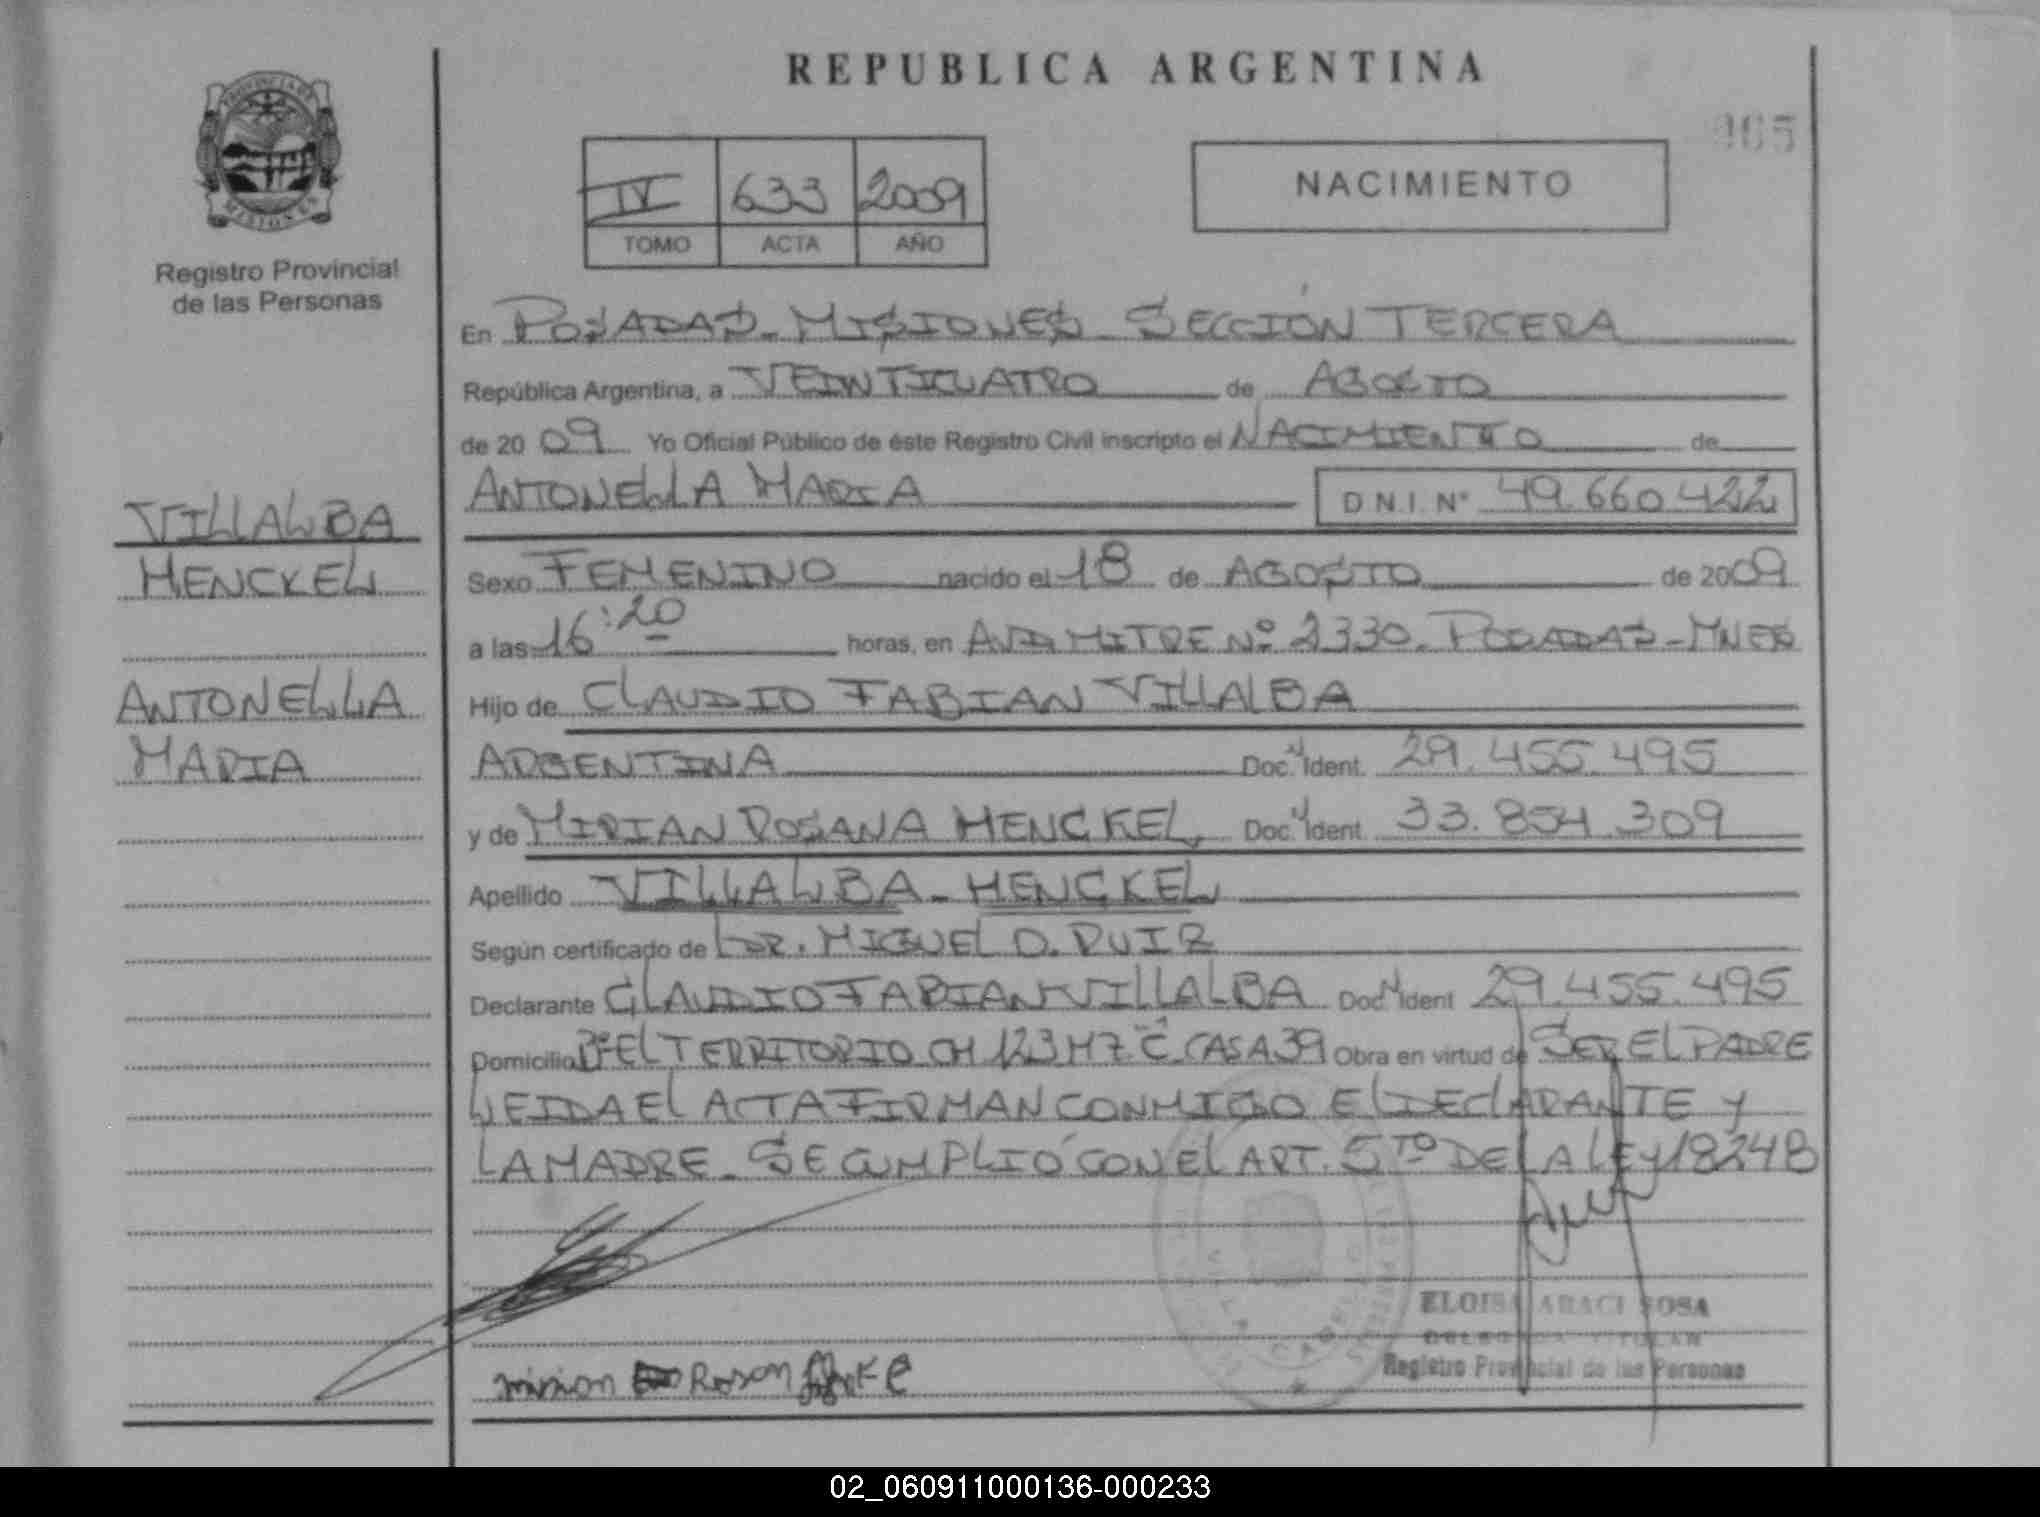 REPUBLICA ARGENTINA
PROVINCIA DE
MISIONES
Registro Provincial
de las Personas
965
IV 633 2009
TOMO ACTA AÑO
NACIMIENTO
En POSADAS - MISIONES - SECCIÓN TERCERA
República Argentina, a VEINTICUATRO de AGOSTO
de 2009 Yo Oficial Público de éste Registro Civil inscripto el NACIMIENTO de
ANTONELLA MARIA D.N.I. N° 49.660.422
VILLALBA
HENCKEL
ANTONELLA
MARIA
Sexo FEMENINO nacido el 18 de AGOSTO de 2009
a las 16:20 horas, en AVDA MITRE Nº 2330. POSADAS - MNES
Hijo de CLAUDIO FABIAN VILLALBA
ARGENTINA Doc. Ident. 29.455.495
y de MIRIAN ROSANA HENCKEL, Doc. Ident. 33.854.309
Apellido VILLALBA - HENCKEL
Según certificado de DR. MIGUEL O. RUIZ
Declarante CLAUDIO FABIAN VILLALBA Doc. Ident 29.455.495
Domicilio Bº EL TERRITORIO CH 123 M7 "C" CASA 39 Obra en virtud de SER EL PADRE
LEIDA EL ACTA FIRMAN CONMIGO EL DECLARANTE Y
LA MADRE - SE CUMPLIÓ CON EL ART. 5TO DE LA LEY 18248
ELOISA ARACI SOSA
Registro Provincial de las Personas
02_060911000136-000233